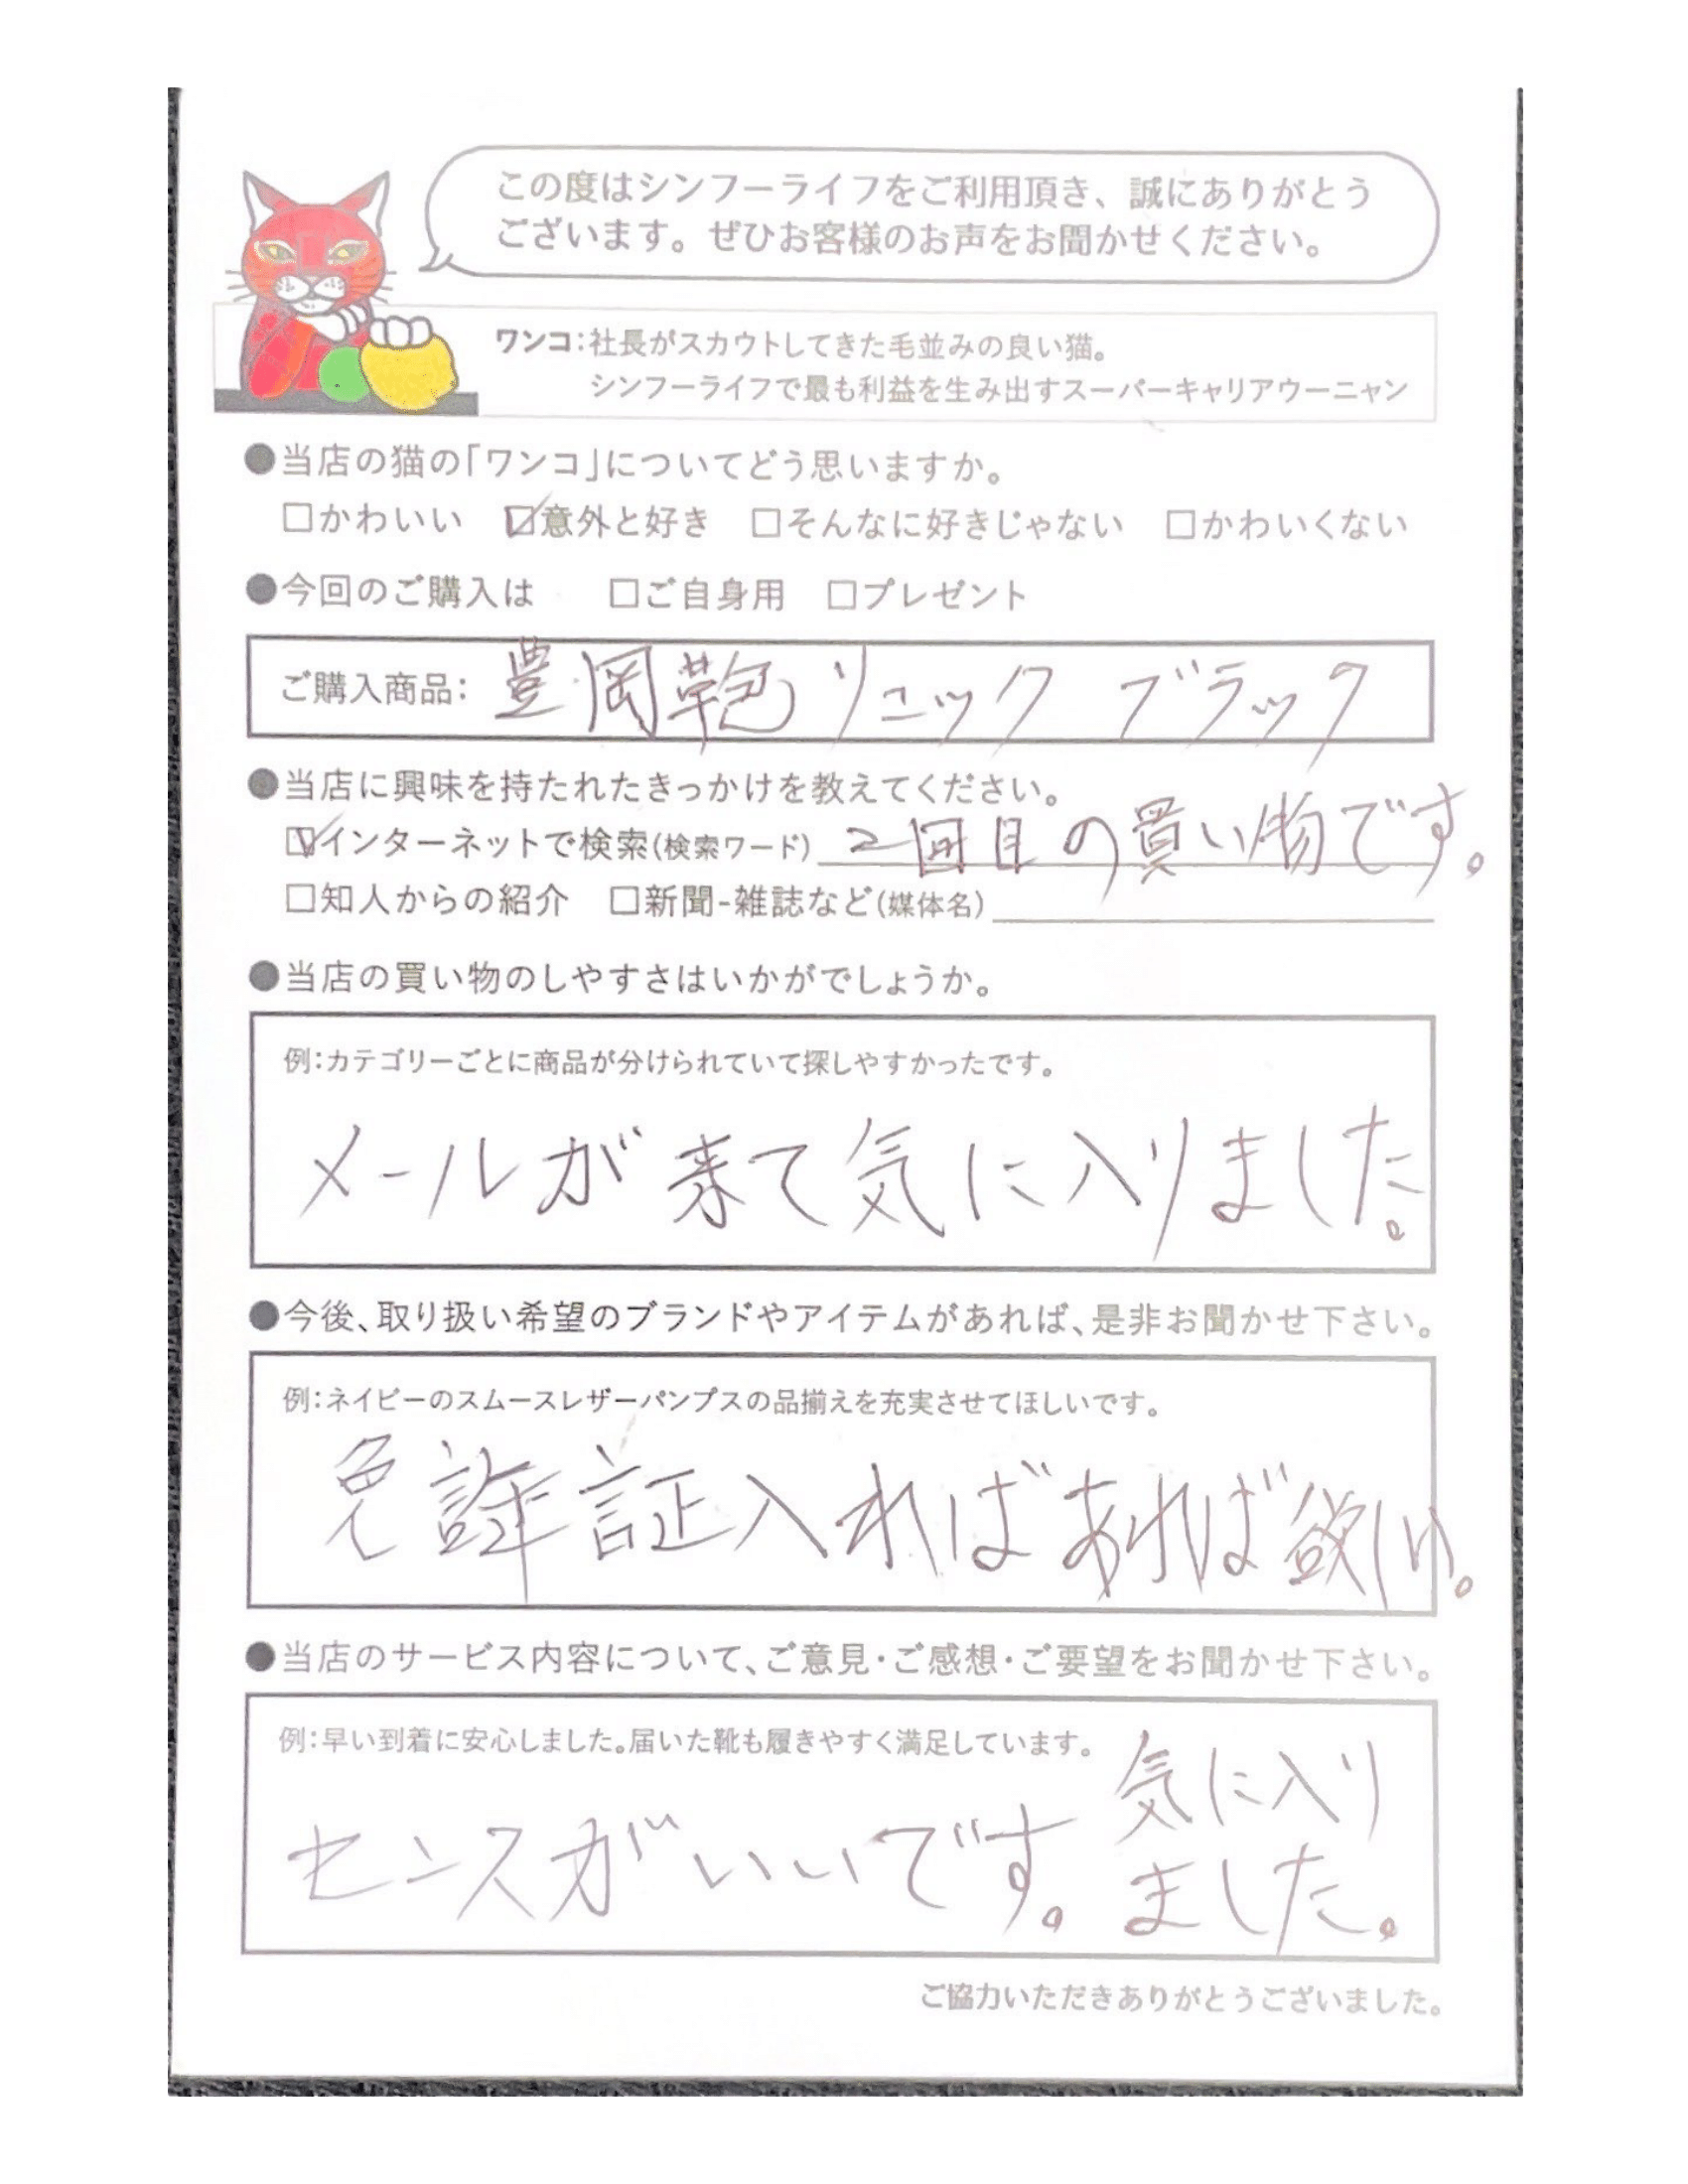 この度はシンフーライフをご利用頂き、誠にありがとう
ございます。ぜひお客様のお声をお聞かせください。
ワンコ：社長がスカウトしてきた毛並みの良い猫。
シンフーライフで最も利益を生み出すスーパーキャリアウーニャン
●当店の猫の「ワンコ」についてどう思いますか。
□かわいい ☑意外と好き □そんなに好きじゃない □かわいくない
●今回のご購入は □ご自身用 □プレゼント
ご購入商品：豊岡鞄リュック ブラック
●当店に興味を持たれたきっかけを教えてください。
☑インターネットで検索(検索ワード) 2回目の買い物です。
□知人からの紹介 □新聞-雑誌など(媒体名)
●当店の買い物のしやすさはいかがでしょうか。
例：カテゴリーごとに商品が分けられていて探しやすかったです。
メールが来て気に入りました。
●今後、取り扱い希望のブランドやアイテムがあれば、是非お聞かせ下さい。
例：ネイビーのスムースレザーパンプスの品揃えを充実させてほしいです。
免許証入ればあれば欲しい。
●当店のサービス内容について、ご意見・ご感想・ご要望をお聞かせ下さい。
例：早い到着に安心しました。届いた靴も履きやすく満足しています。
センスがいいです。気に入り
ました。
ご協力いただきありがとうございました。